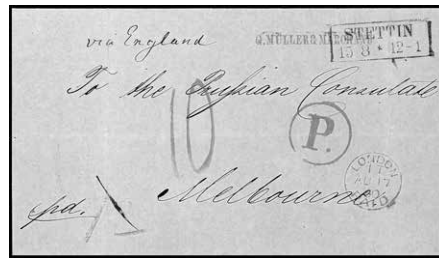 via England
G. MÜLLER
STETTIN
8 * 12-1
To the Prussian Consulate
10
P.
LONDON
PAID
Melbourne
pd.